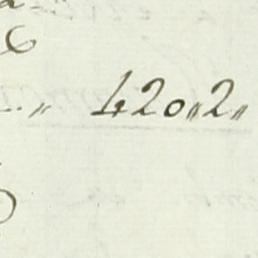 „ 420„2„